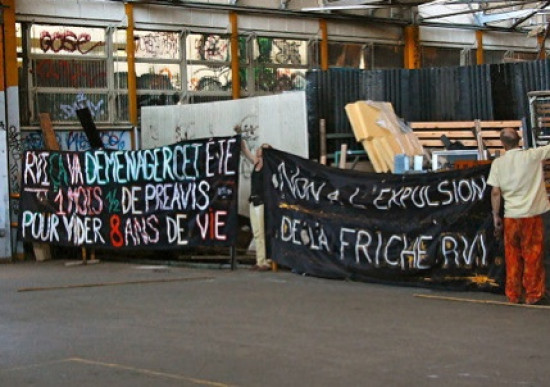 RVI ÇA VA DEMENAGER CET ÉTÉ
1 MOIS 1/2 DE PREAVIS
POUR VIDER 8 ANS DE VIE
NON A L'EXPULSION
DE LA FRICHE RVI
GOSE